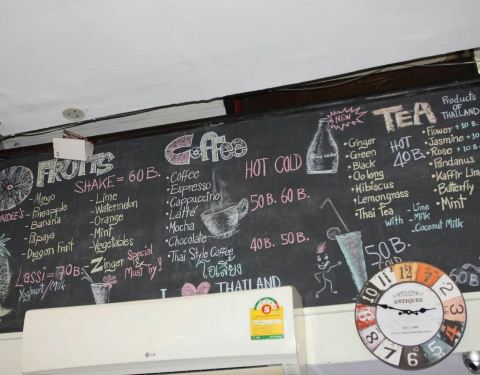 FRUITS
SHAKE = 60 B.
- Mango
- Pineapple
- Banana
- Papaya
- Dragon Fruit
- Lime
- Watermelon
- Orange
- Mint
- Vegetables
Zinger
Special & Must Try!
Lassi = 70 B.
Yoghurt / Milk
Coffee
HOT COLD
- Coffee
- Espresso
- Cappuccino
- Latte
- Mocha
- Chocolate
- Thai Style Coffee
50 B. 60 B.
40 B. 50 B.
I
THAILAND
NEW
TEA
Products of THAILAND
- Ginger
- Green
- Black
- Oolong
- Hibiscus
- Lemongrass
- Thai Tea
HOT
40 B.
- Flower +10 B.
- Jasmine +10 B.
- Rose +10 B.
- Pandanus
- Kaffir Lim
- Butterfly
- Mint
with - Lime
- Milk
- Coconut Milk
50 B.
60 B.
LG
5
ANTIQUES
12
11
10
9
8
7
6
5
4
3
2
1